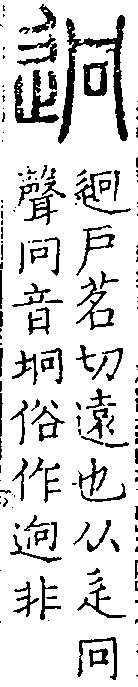 迥
迥戶茗切遠也从辵冋
聲冋音坰俗作逈非